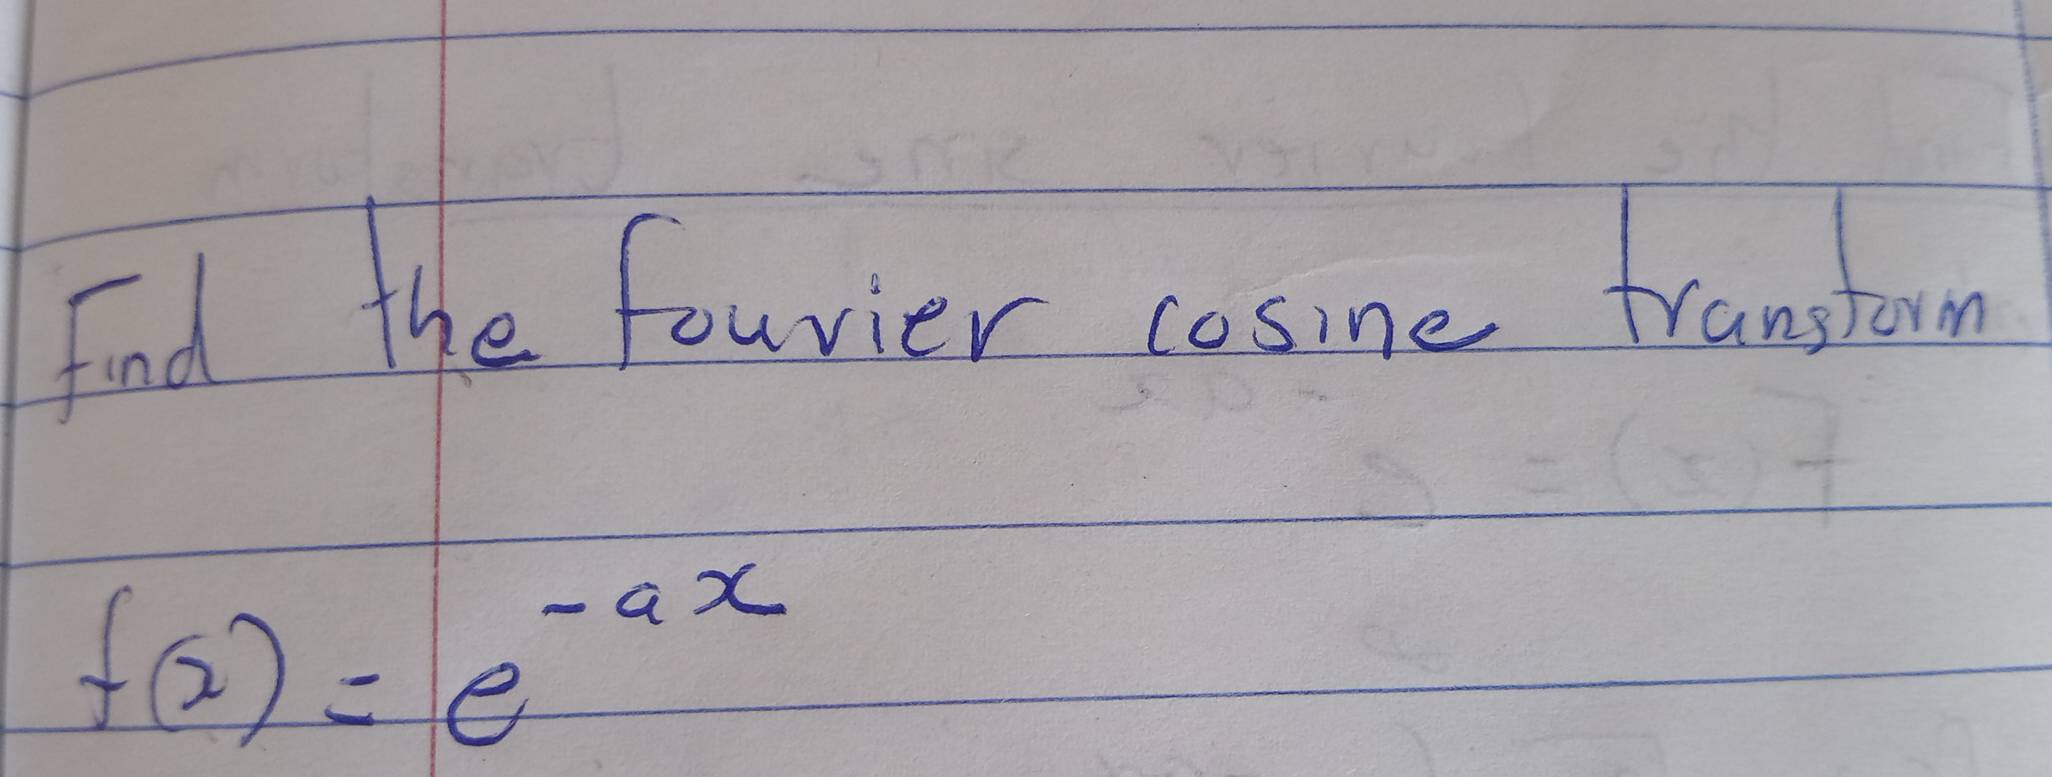 Find the fourier cosine transform
f(x) = e^{-ax}